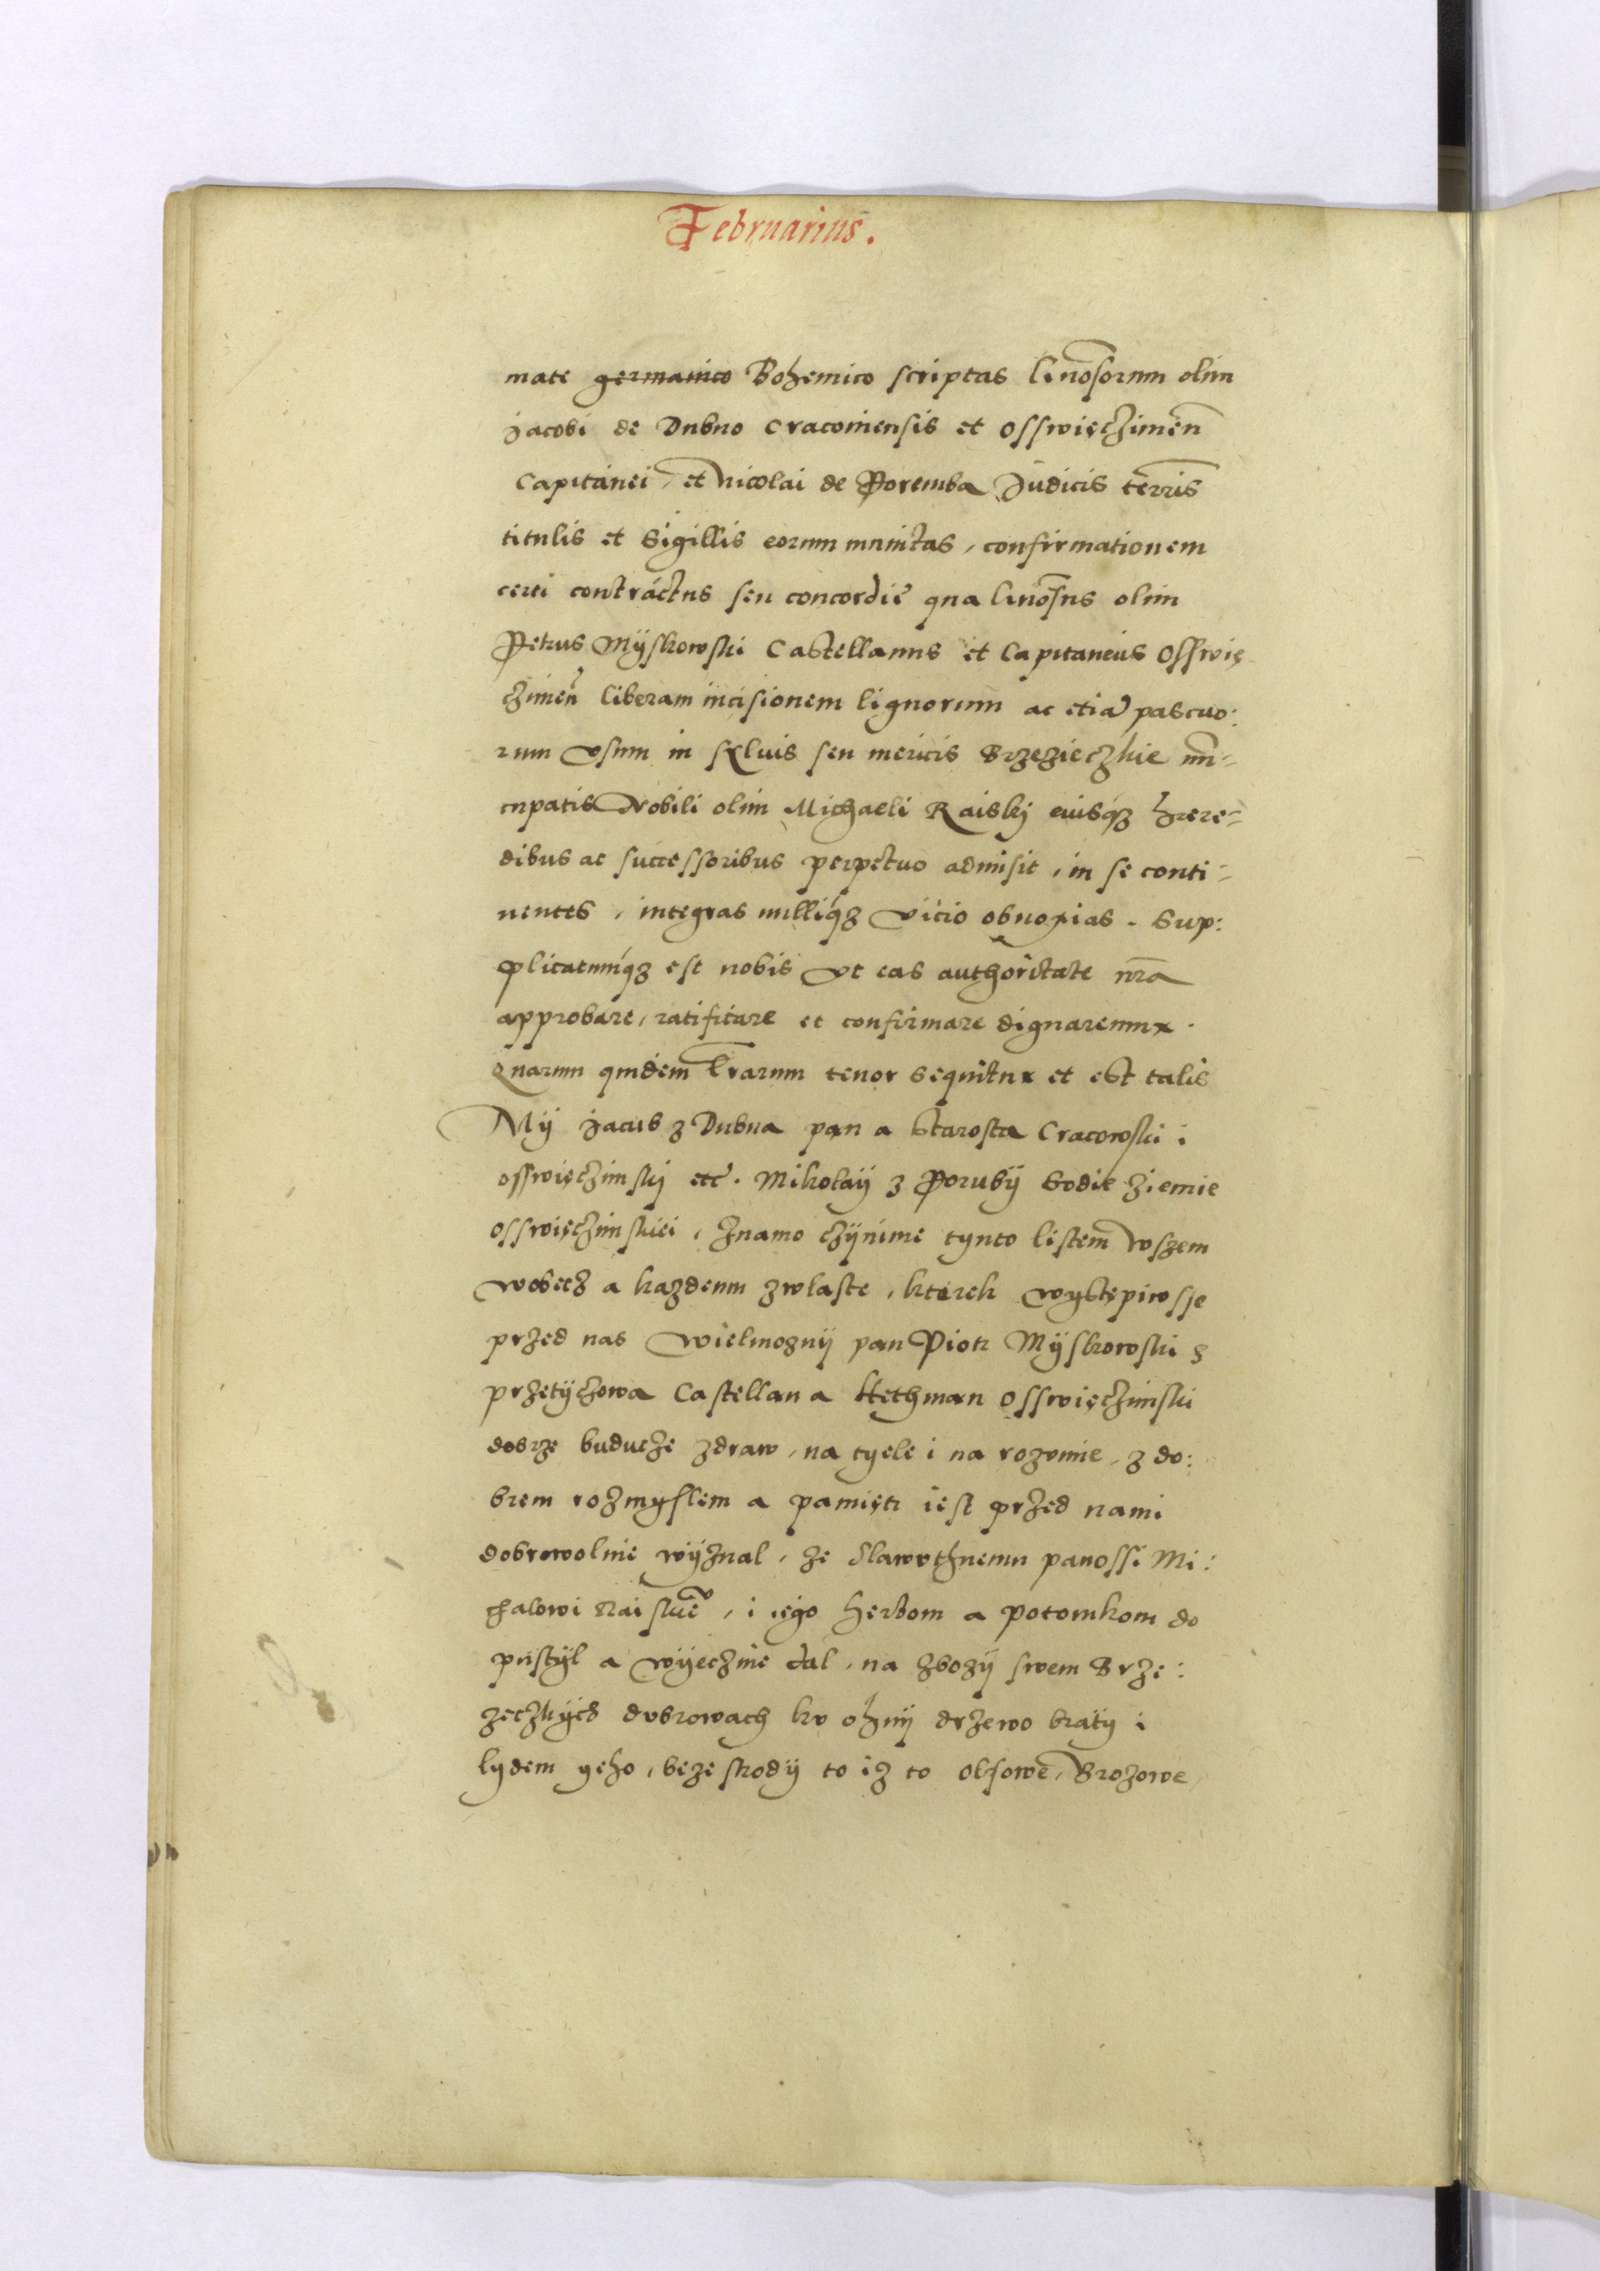 Februarius.
mate germanico Bohemico scriptas gnosorum olim
Jacobi de Dubno Cracoviensis et Osswięczimen
Capitanei, et Nicolai de Poremba Judicis terris
titulis et Sigillis eorum munitas, confirmationem
certi contractus seu concordie qua gnosus olim
Petrus Myskowski Castellanus et Capitaneus Osswię
czimen liberam incisionem lignorum ac etia pascuo:
rum Vsum in sylvis seu mericis Brzezieczkie nu=
cupatis Nobili olim Michaeli Raiskj eiusq3 Here=
dibus ac successoribus perpetuo admisit, in se conti=
nentes, integras nulliq3 vicio obnoxias. Sup:
plicatumq3 est nobis vt eas authoritate nra
approbare, ratificare et confirmare dignaremur.
Quarum quidem lrarum tenor sequitur et est talis
My Jacub z Dubna pan a Starosta Cracowski i
osswięczimskj etc. Mikolay z Poruby Sodie ziemie
osswięczimskiei, znamo czynime tynto listem wszem
wobecz a kazdemu zwlaste, kterek występiwsje
przed nas Wielmozny pan Piotr Myskowski z
przetyczowa Castellan a Hethman Osswięczimski
dobrze buducze zdraw, na tyele i na rozumie, z do:
brem rozmyslem a pamięti iest przed nami
dobrowolnie wyznal, ze Slawutznemu panossi Mi:
chalowi Raiskie, i iego Herbom a potomkom do
pustyl a wyecznie dal, na zbozy swem Brze:
zeczkyeg dubrowach ku ohny drzewo braty i
lydem yeho, beze skody to iz to olssowe, Brozowe,